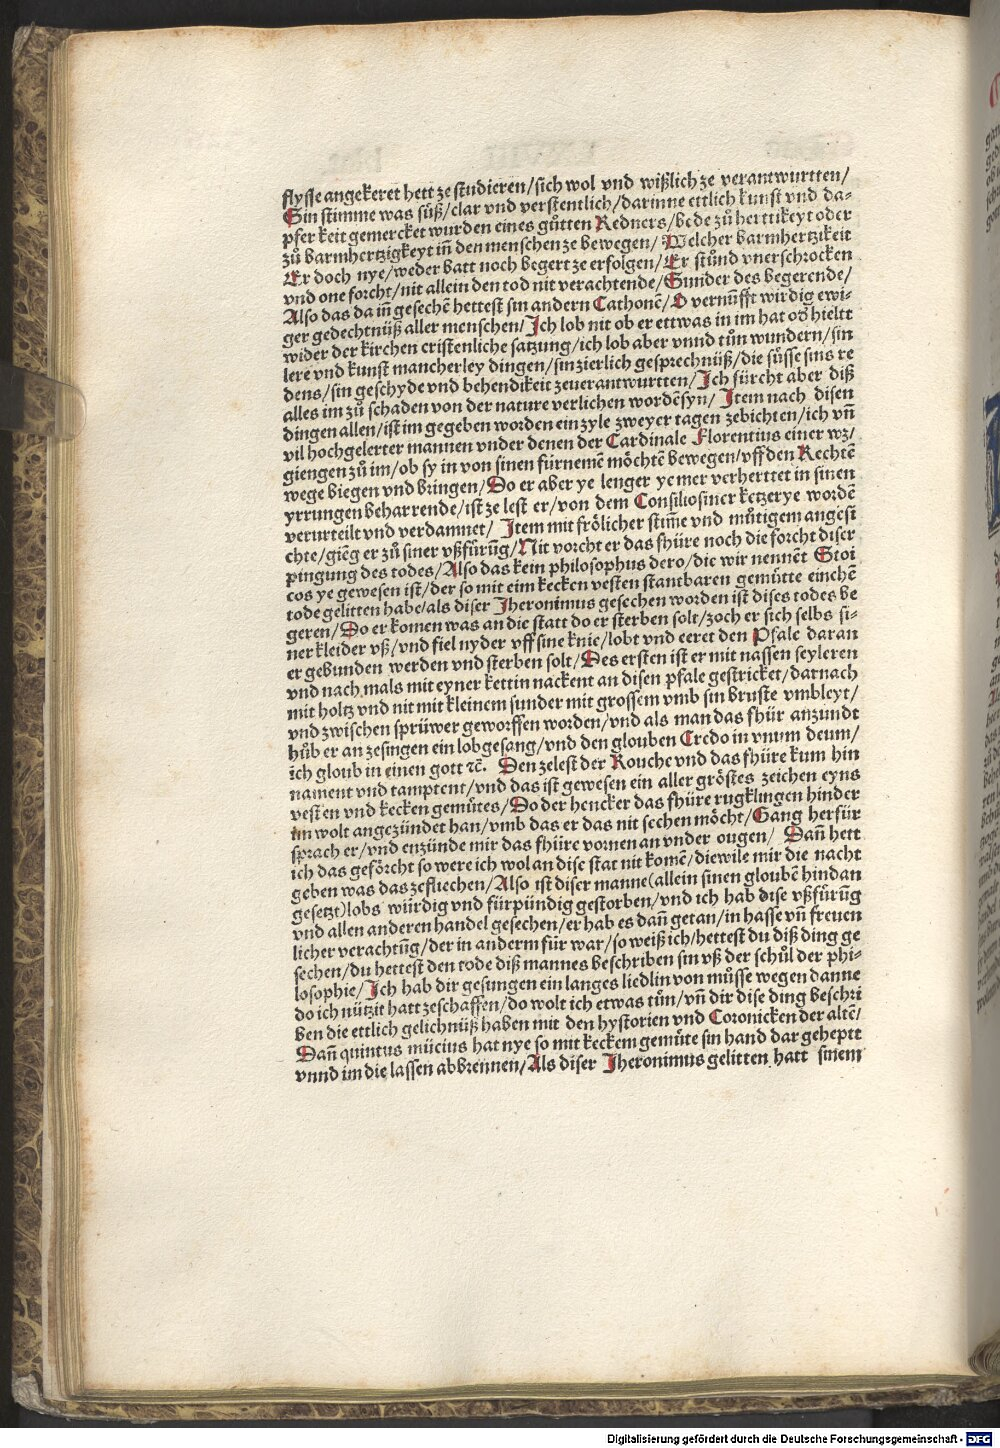 flysse angekeret hett ze studieren/sich wol vnd wißlich ze verantwurtten/
Sin stimme was süß/clar vnd verstentlich/darinne ettlich kunst vnd da-
pfer keit gemercket wurden eines gůtten Redners/bede zů herttikeyt oder
zů barmhertzigkeyt in̄ den menschen ze bewegen/ Welcher barmhertzikeit
Er doch nye/weder batt noch begert ze erfolgen/Er stůnd vnerschrocken
vnd one forcht/nit allein den tod nit verachtende/Sunder des begerende/
Also das da in̄ gesechē hettest sin andern Cathonē/O vernunfft wirdig ewi-
ger gedechtnüß aller menschen/Ich lob nit ob er ettwas in im hat od' hieltt
wider der kirchen cristenliche satzung/ich lob aber vnnd tůn wundern/sin
lere vnd kunst mancherley dingen/sin zierlich gesprechnüß/die süsse sins re
dens/sin geschyde vnd behendikeit zeuerantwurtten/Ich fürcht aber diß
alles im zů schaden von der nature verlichen wordē syn/ Item nach disen
dingen allen/ist im gegeben worden ein zyle zweyer tagen zebichten/ich vn̄
vil hochgelerter mannen vnder denen der Cardinale Florentius einer wz/
giengen zů im/ob sy in von sinen fürnemē möchtē bewegen/vff den Rechtē
wege biegen vnd bringen/Do er aber ye lenger ye mer verherttet in sinen
yrrungen beharrende/ist ze lest er/von dem Consilio siner ketzerye wordē
verurteilt vnd verdamnet/ Item mit frölicher stim̄e vnd můtigem angesi
chte/giēg er zů siner vßfürūg/Nit vorcht er das fhüre noch die forcht diser
pingung des todes/Also das kein philosophus dero/die wir nennēt Stoi
cos ye gewesen ist/der so mit eim kecken vesten stantbaren gemütte einchē
tode gelitten habe/als diser Jheronimus gesechen worden ist dises todes be
geren/Do er komen was an die statt do er sterben solt/zoch er sich selbs si-
ner kleider vß/vnd fiel nyder vff sine knie/lobt vnd eeret den Pfale daran
er gebunden werden vnd sterben solt/Des ersten ist er mit nassen seyleren
vnd nach mals mit eyner kettin nackent an disen pfale gestricket/darnach
mit holtz vnd nit mit kleinem sunder mit grossem vmb sin bruste vmbleyt/
vnd zwischen sprüwer geworffen worden/vnd als man das fhür anzundt
hůb er an zesingen ein lobgesang/vnd den glouben Credo in vnum deum/
ich gloub in einen gott ꝛc̄. Den zelest der Rouche vnd das fhüre kum hin
nament vnd tamptent/vnd das ist gewesen ein aller gröstes zeichen eyns
vesten vnd kecken gemütes/Do der hencker das fhüre rugklingen hinder
im wolt angezündet han/vmb das er das nit sechen möcht/Gang herfür
sprach er/vnd enzünde mir das fhüre vornen an vnder ougen/ Dan̄ hett
ich das geförcht so were ich wol an dise stat nit komē/diewile mir die nacht
geben was das zefliechen/Also ist diser manne(allein sinen gloubē hindan
gesetzt)lobs würdig vnd fürpündig gestorben/vnd ich hab dise vßfürūg
vnd allen anderen handel gesechen/er hab es dan̄ getan/in hasse vn̄ freuen
licher verachtūg/der in anderm für war/so weiß ich/hettest du diß ding ge
sechen/du hettest den tode diß mannes beschriben sin vß der schůl der phi-
losophie/Ich hab dir gesungen ein langes liedlin von můsse wegen danne
do ich nützit hatt zeschaffen/do wolt ich etwas tůn/vn̄ dir dise ding beschri
ben die ettlich gelichnüß haben mit den hystorien vnd Coronicken der altē/
Dan̄ quintus mücius hat nye so mit keckem gemüte sin hand dar geheptt
vnnd im die lassen abbrennen/Als diser Jheronimus gelitten hatt sinem
Digitalisierung gefördert durch die Deutsche Forschungsgemeinschaft - DFG